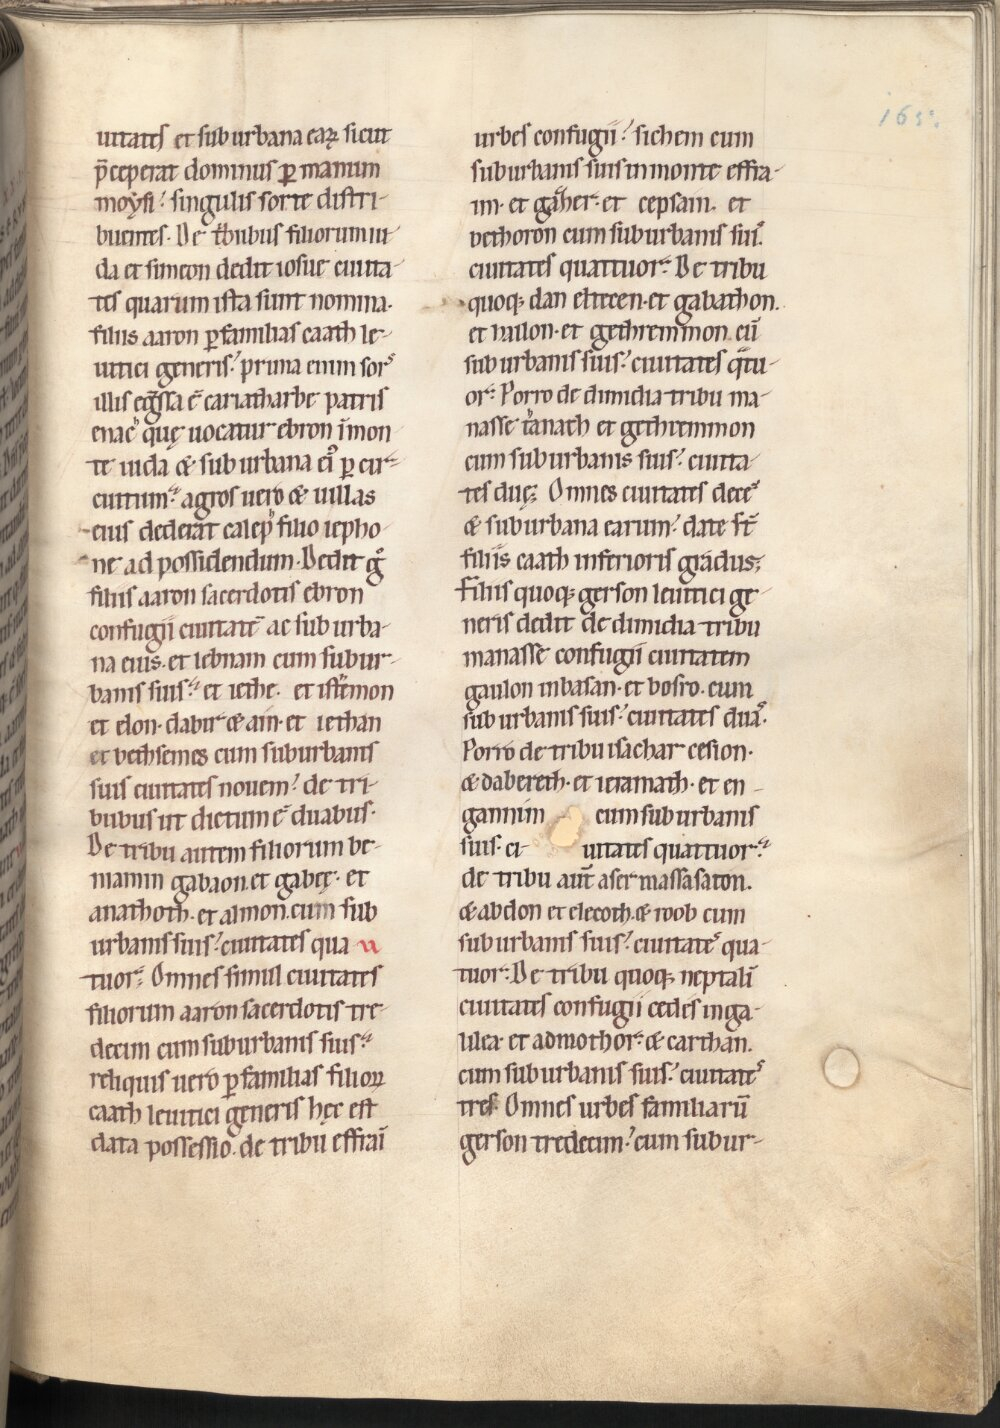 165.
uitates et suburbana eaꝝ sicut
p̄ceperat dominus ꝑ manum
moysi? singulis sorte distri-
buentes. De tͥbubus filiorum iu-
da et simeon dedit iosue ciuita-
tes quarum ista sunt nomina.
filiis aaron ꝑ familias caath le-
uitici generis? prima enim sors
illis eg̃ssa ē cariatharbe patris
enac quę uocatur ebron ī mon-
te iuda & suburbana ei ꝑ cir-
cuitum. agros uero & uillas
eius dederat caleph filio iepho-
ne ad possidendum. Dedit g̊
filiis aaron sacerdotis ebron
confugii ciuitatē ac suburba-
na eius. et lebnam cum subur-
banis suis. et iethe. et istēmon
et elon. dabir & ain. et iethan
et bethsemes cum suburbanis
suis ciuitates nouem? de tri-
bubus ut dictum ē duabus.
De tribu autem filiorum be-
niamin gabaon. et gabeę. et
anathoth. et almon. cum sub
urbanis suis? ciuitates qua u
tuor. Omnes simul ciuitates
filiorum aaron sacerdotis tre-
decim cum suburbanis suis.
reliquis uero ꝑ familias filioꝝ
caath leuitici generis hęc est
data possessio. de tribu effraī
urbes confugii? sichem cum
suburbanis suis in monte effra-
im. et gaͣher. et cepsaim. et
bethoron cum suburbanis suis.
ciuitates quattuor. De tribu
quoq; dan elteen. et gabathon.
et hillon. et gethremmon. cū
suburbanis suis? ciuitates qͣtu-
or. Porro de dimidia tribu ma-
nasse thanach et gethremmon
cum suburbanis suis? ciuita-
tes duę; Omnes ciuitates decē
& suburbana earum? date st̄
filiis caath inferioris gradus;
Filiis quoq; gerson leuitici ge-
neris dedit de dimidia tribu
manasse confugii ciuitatem
gaulon in basan. et bosro. cum
suburbanis suis? ciuitates duas.
Porro de tribu isachar cesion.
& dabereth. et ieramath. et en-
gannim cum suburbanis
suis. ci- uitates quattuor.
de tribu aut̄ aser massasaton.
& abdon et elecoth. & roob cum
suburbanis suis? ciuitates qua-
tuor. De tribu quoq; neptali
ciuitates confugii cedes in ga-
lilea. et admothor. & carthan.
cum suburbanis suis? ciuitates
tres. Omnes urbes familiarū
gerson tredecim? cum subur-